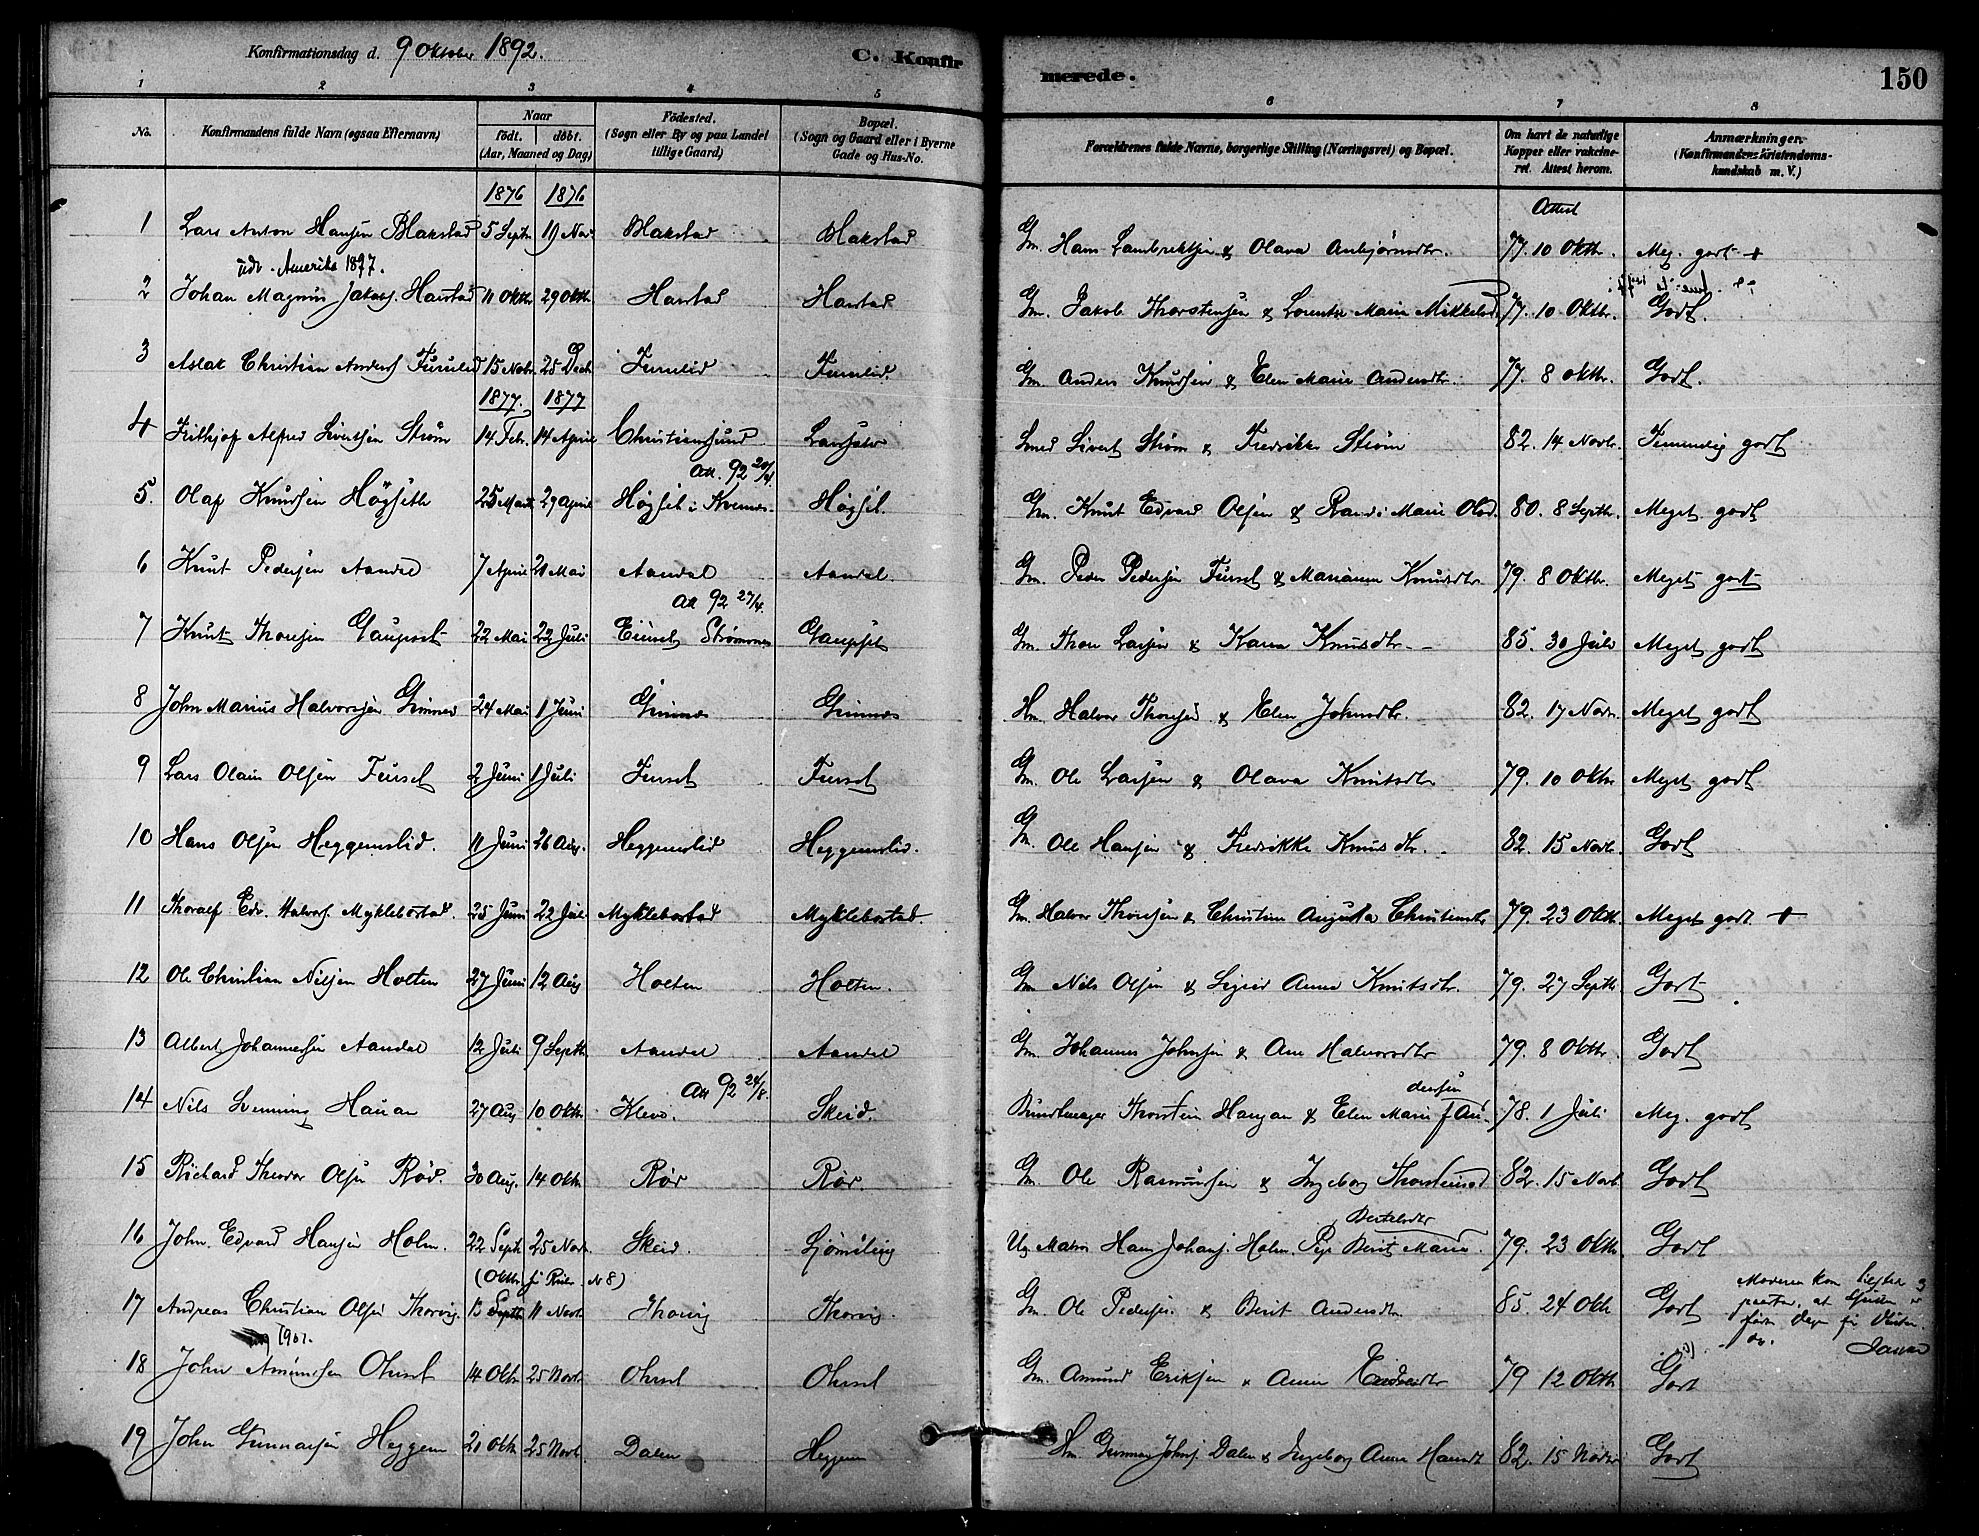 Konfirmationsdag d. 9 Oktober 1892.
C. Konfirmerede.
150
1 2 3 4 5 6 7 8
No.
Konfirmandens fulde Navn (ogsaa Efternavn)
Naar
født. døbt.
(Aar, Maaned og Dag)
Fødested.
(Sogn eller By og paa Landet
tillige Gaard)
Bopæl.
(Sogn og Gaard eller i Byerne
Gade og Hus-No.
Forældrenes fulde Navne, borgerlige Stilling (Næringsvei) og Bopæl.
Om havt de naturlige
Kopper eller vakcine-
ret. Attest herom.
Anmærkninger.
(Konfirmandens Kristendoms-
kundskab m. V.)
1876 1876 Attest
1 Lars Anton Hansen Blakstad 5 Septr 19 Nov. Blakstad Blakstad Gm. Hans Lambrektsen & Olava Anbjørnsdtr. 77. 10 Oktbr. Meg. godt +
udv. Amerika 1877.
2 Johan Magnus Jakobs. Harstad 11 Oktbr 29 Oktbr Harstad Harstad Gm. Jakob Thorstensen & Lorentze Marie Mikkelsd 77. 10 Oktbr. Godt.
3 Aslak Christian Anders. Furulid 15 Novbr. 25 Decb. Furulid Furulid. Gm Anders Knudsen & Elen Marie Andersdtr. 77. 8 Oktbr. Godt.
1877. 1877
4 Frithjof Alfred Sivertsen Strøm 14 Feb. 14 April Christianssund Smed Sivert Strøm & Fredrikke Strøm 82. 14 Novbr. Temmelig godt
Att. 92 20/4.
5. Olaf Knudsen Høgseth 25 Marts 29 April Høgset i Kvernes. Høgset. Gm. Knut Edvard Olsen & Randi Marie Olsd. 80. 8 Septbr. Meget godt
6 Knut Pedersen Aandal 7 April 21 Mai Aandal Aandal Gm Peder Pedersen Furset & Marianne Knudsdtr 79. 8 Oktbr. Meget godt
Att 92 27/4.
7 Knut Thoresen Gaupset 22 Mai 22 Juli Eiset, Strømsnes Gaupset Gm. Thore Larsen & Karen Knudsdtr. 85. 30 Juli Meget godt
8 John Marius Halvorsen Gimnes 24 Mai 1 Juni Gimnes Gimnes Hm Halvor Thoresen & Elen Johnsdtr. 82. 17 Novr. Meget godt
9 Lars Olaus Olsen Furset 2 Juni 1 Juli Furset Furset Gm. Ole Larsen & Olava Knutsdtr 79. 10 Oktbr Meget godt
10 Hans Olsen Heggemslid. 11 Juni 26 Aug. Heggemslid Heggemslid. Gm Ole Hansen & Fredrikke Knudsdtr. 82. 15 Novbr. Godt
11 Thoralf Edv. Halvors. Myklebostad. 25 Juni 22 Juli Myklebostad Myklebostad Gm. Halvor Thoresen & Christine Augusta Christiansdtr 79. 23 Oktbr. Meget godt +
12 Ole Christian Nilsen Holten 27 Juni 12 Aug Holten Holten. Gm Nils Olsen & Sigrid Anna Knutsdtr. 79. 27 Septbr. Godt
13 Albert Johannessen Aandal 12 Juli 9 Septbr Aandal Aandal Gm. Johannes Johnsen & Ane Halvorsdtr 79. 8 Oktbr. Godt
Att 92 24/8. dersen
14 Nils Svenning Haugan 27 Aug 10 Oktbr. Klevs. Skeid. Buntmager Thorstein Haugan & Elen Marie f An- 78. 1 Juli Meg. godt
15 Richard Theodor Olsen Rød. 30 Aug. 14 Oktbr Rød Rød. Gm. Ole Rasmussen & Ingeborg Thorsteinsd 82. 15 Novbr Godt
Bertelsdtr
16 John Edvard Hansen Holm. 22 Septbr 25 Novbr. Skeid. Ug Matros Hans Johans. Holm. Pige Berit Marie. 79. 23 Oktbr. Godt
(Oktbr. N 8)
17 Andreas Christian Olsen Thorvig. 13 Septbr 11 Novbr Thorvig Thorvig. Gm. Ole Pedersen & Berit Andersdtr 85. 24 Oktbr Godt
Moderen kom
1901.
18 John Amundsen Ohrset 14 Oktbr 25 Novbr. Ohrset Ohrset Gm. Amund Eriksen & Anne 79 12 Oktbr Godt
19 John Gunnarsen Heggem 21 Oktbr 25 Novbr. Dalen Heggem Hm. Gunnar Johns. Dalen & Ingeborg Anna Hansdt 82. 15 Novbr Godt